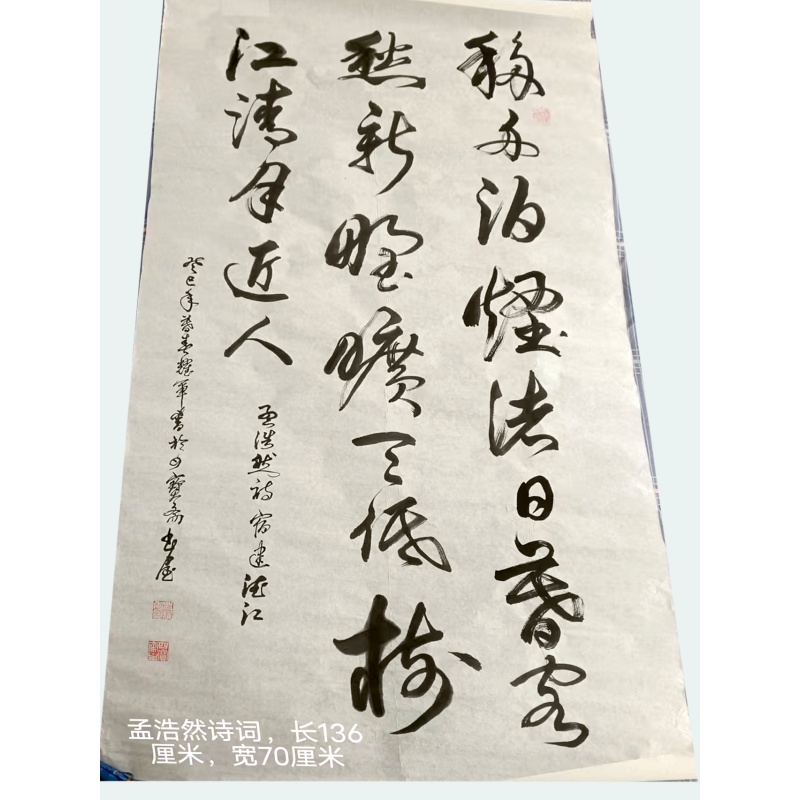 移舟泊煙渚日暮客
愁新野曠天低樹
江清月近人
孟浩然诗宿建德江
癸巳年暮春耀軍書於四寶斋書屋
孟浩然诗词，长136
厘米，宽70厘米